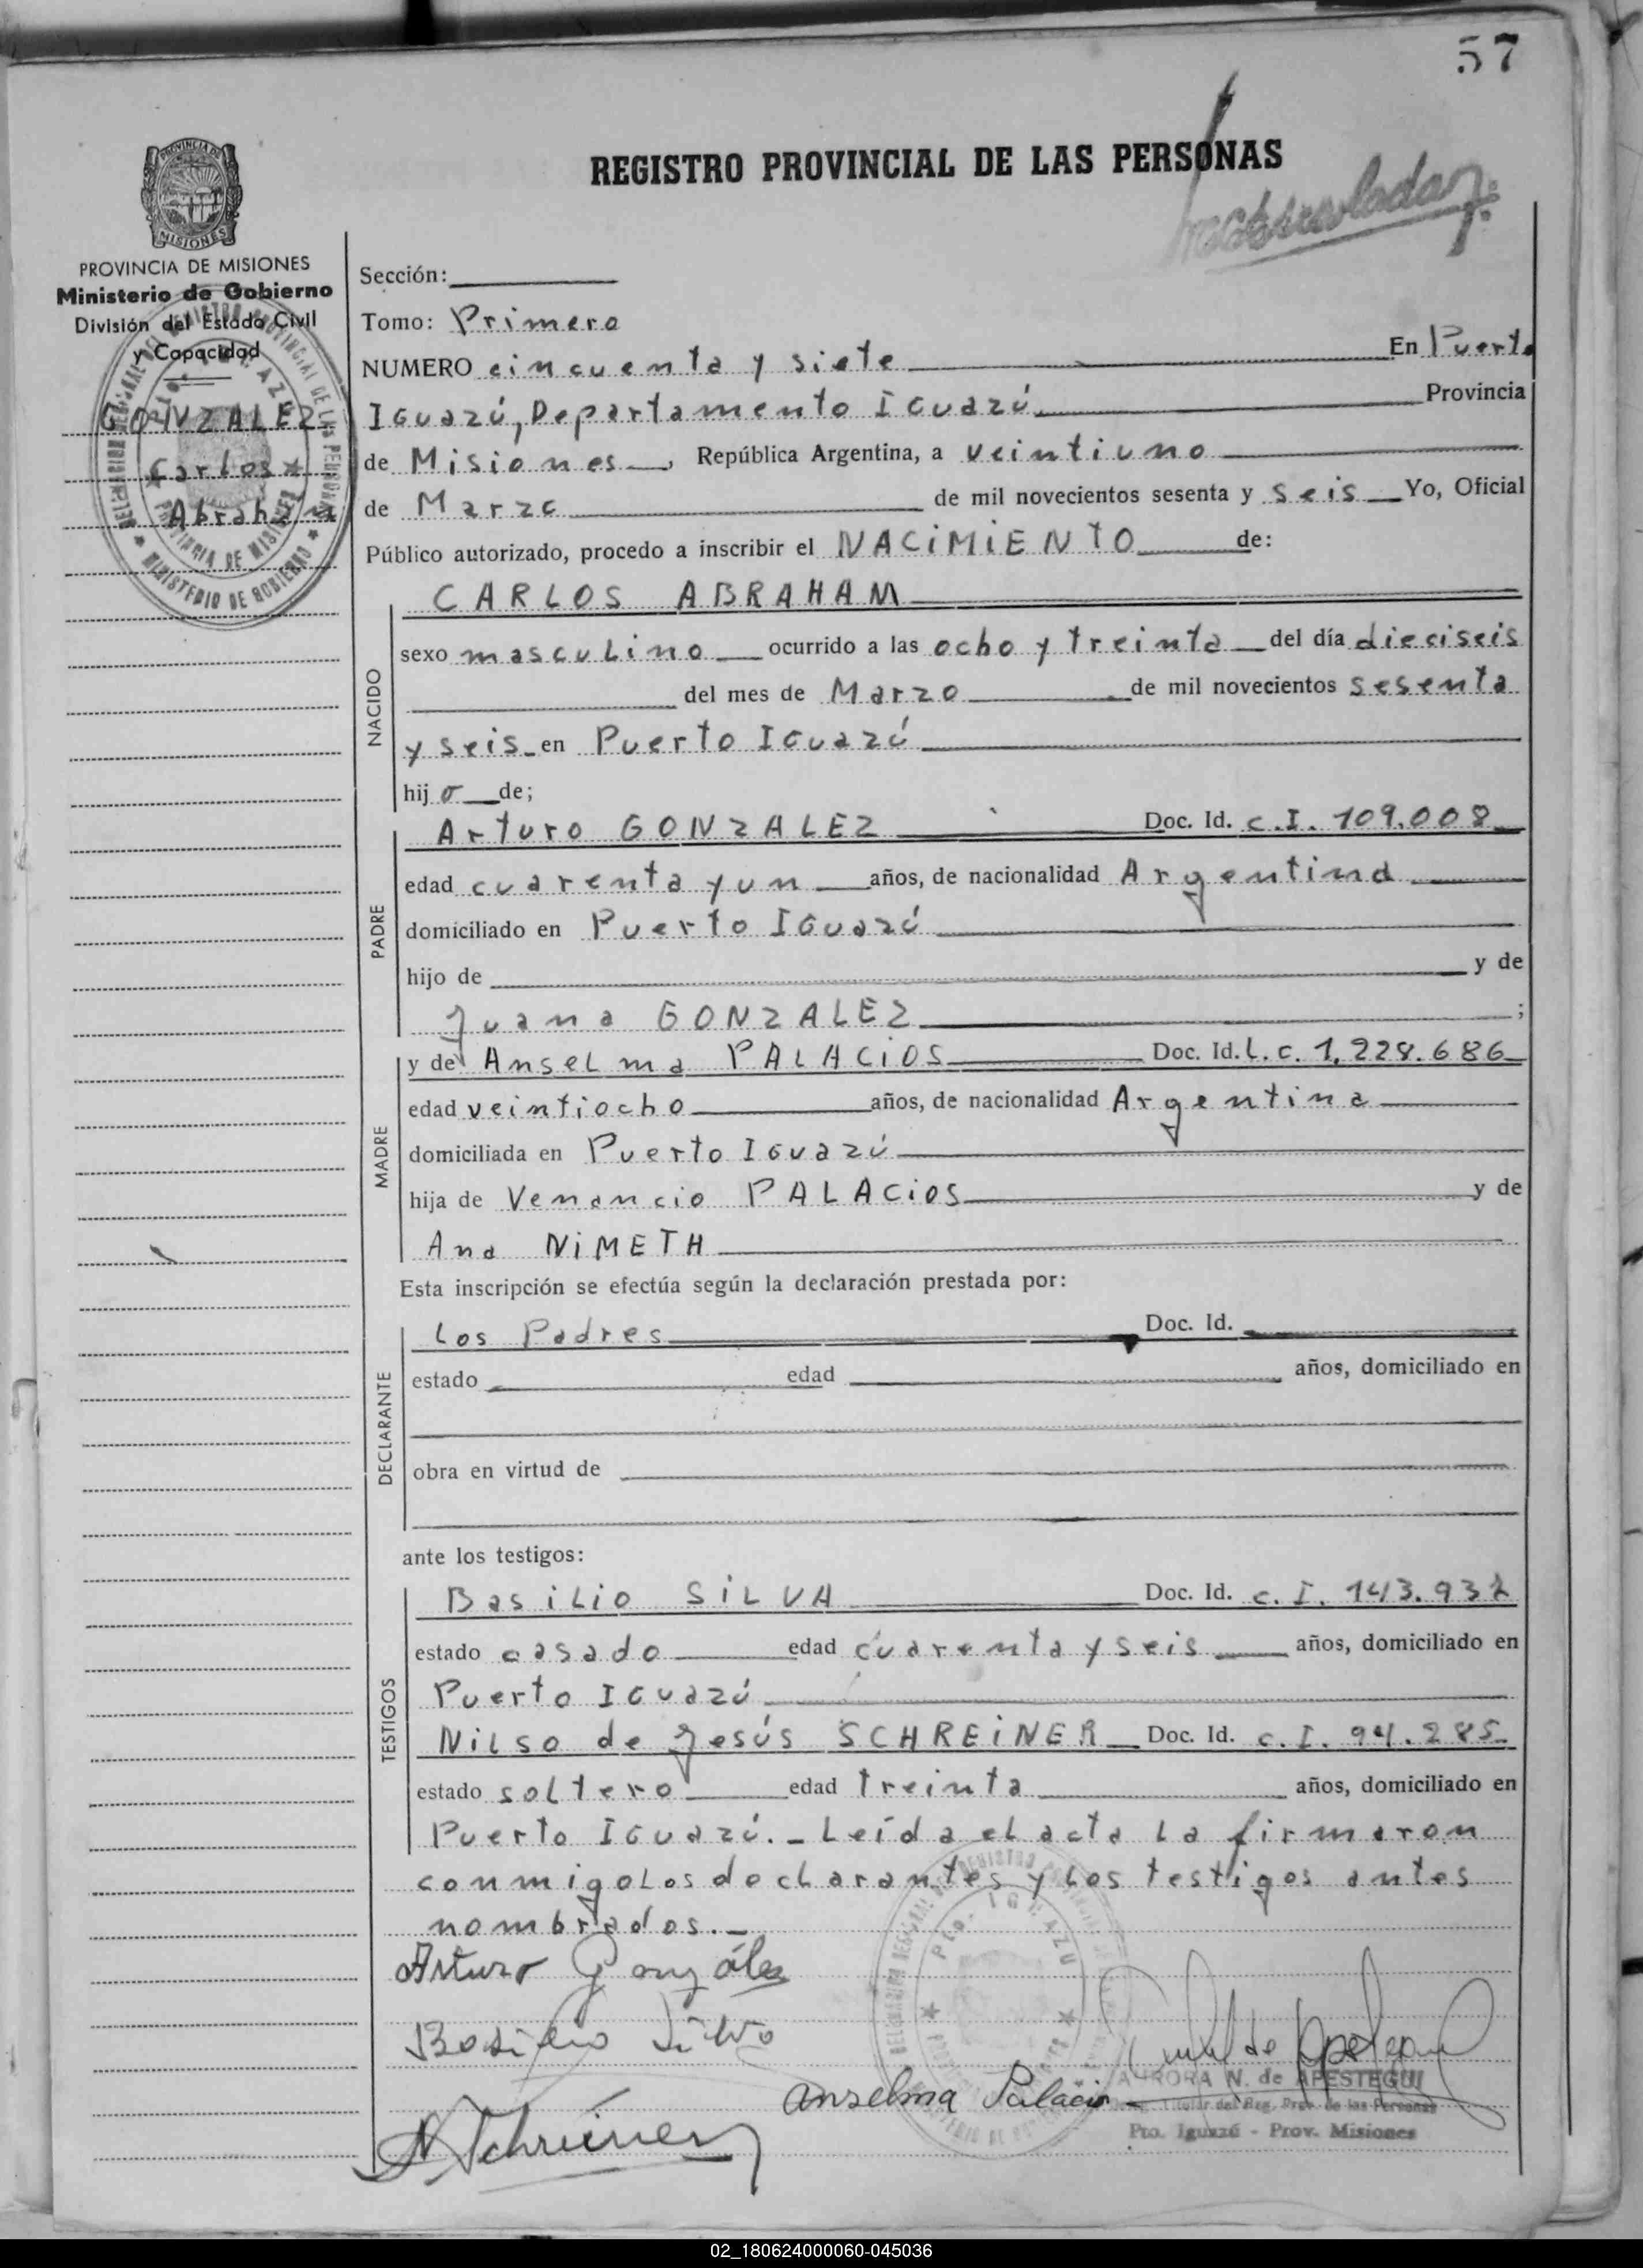 57
REGISTRO PROVINCIAL DE LAS PERSONAS
PROVINCIA DE
MISIONES
PROVINCIA DE MISIONES
Ministerio de Gobierno
División del Estado Civil
y Capacidad
GONZALEZ
Carlos
Abraham
Sección:
Tomo: Primero
NUMERO cincuenta y siete En Puerto
Iguazú, Departamento Iguazú Provincia
de Misiones, República Argentina, a veintiuno
de Marzo de mil novecientos sesenta y seis Yo, Oficial
Público autorizado, procedo a inscribir el NACIMIENTO de:
CARLOS ABRAHAM
NACIDO
sexo masculino ocurrido a las ocho y treinta del día dieciseis
del mes de Marzo de mil novecientos sesenta
y seis en Puerto Iguazú
hijo de;
PADRE
Arturo GONZALEZ Doc. Id. C.I. 109.008
edad cuarenta y un años, de nacionalidad Argentina
domiciliado en Puerto Iguazú
hijo de y de
Juana GONZALEZ ;
MADRE
y de Anselma PALACIOS Doc. Id. L.C. 1.228.686
edad veintiocho años, de nacionalidad Argentina
domiciliada en Puerto Iguazú
hija de Venancio PALACIOS y de
Ana NIMETH
Esta inscripción se efectúa según la declaración prestada por:
DECLARANTE
Los Padres Doc. Id.
estado edad años, domiciliado en
obra en virtud de
ante los testigos:
TESTIGOS
Basilio SILVA Doc. Id. C.I. 143.932
estado casado edad cuarenta y seis años, domiciliado en
Puerto Iguazú
Nilso de Jesús SCHREINER Doc. Id. C.I. 94.285
estado soltero edad treinta años, domiciliado en
Puerto Iguazú.- Leída el acta la firmaron
conmigo los declarantes y los testigos antes
nombrados.-
Arturo González
Basilio Silva
Anselma Palacio
AURORA N. de APESTEGUI
Titular del Reg. Prov. de las Personas
Pto. Iguazú - Prov. Misiones
N Schreiner
02_180624000060-045036